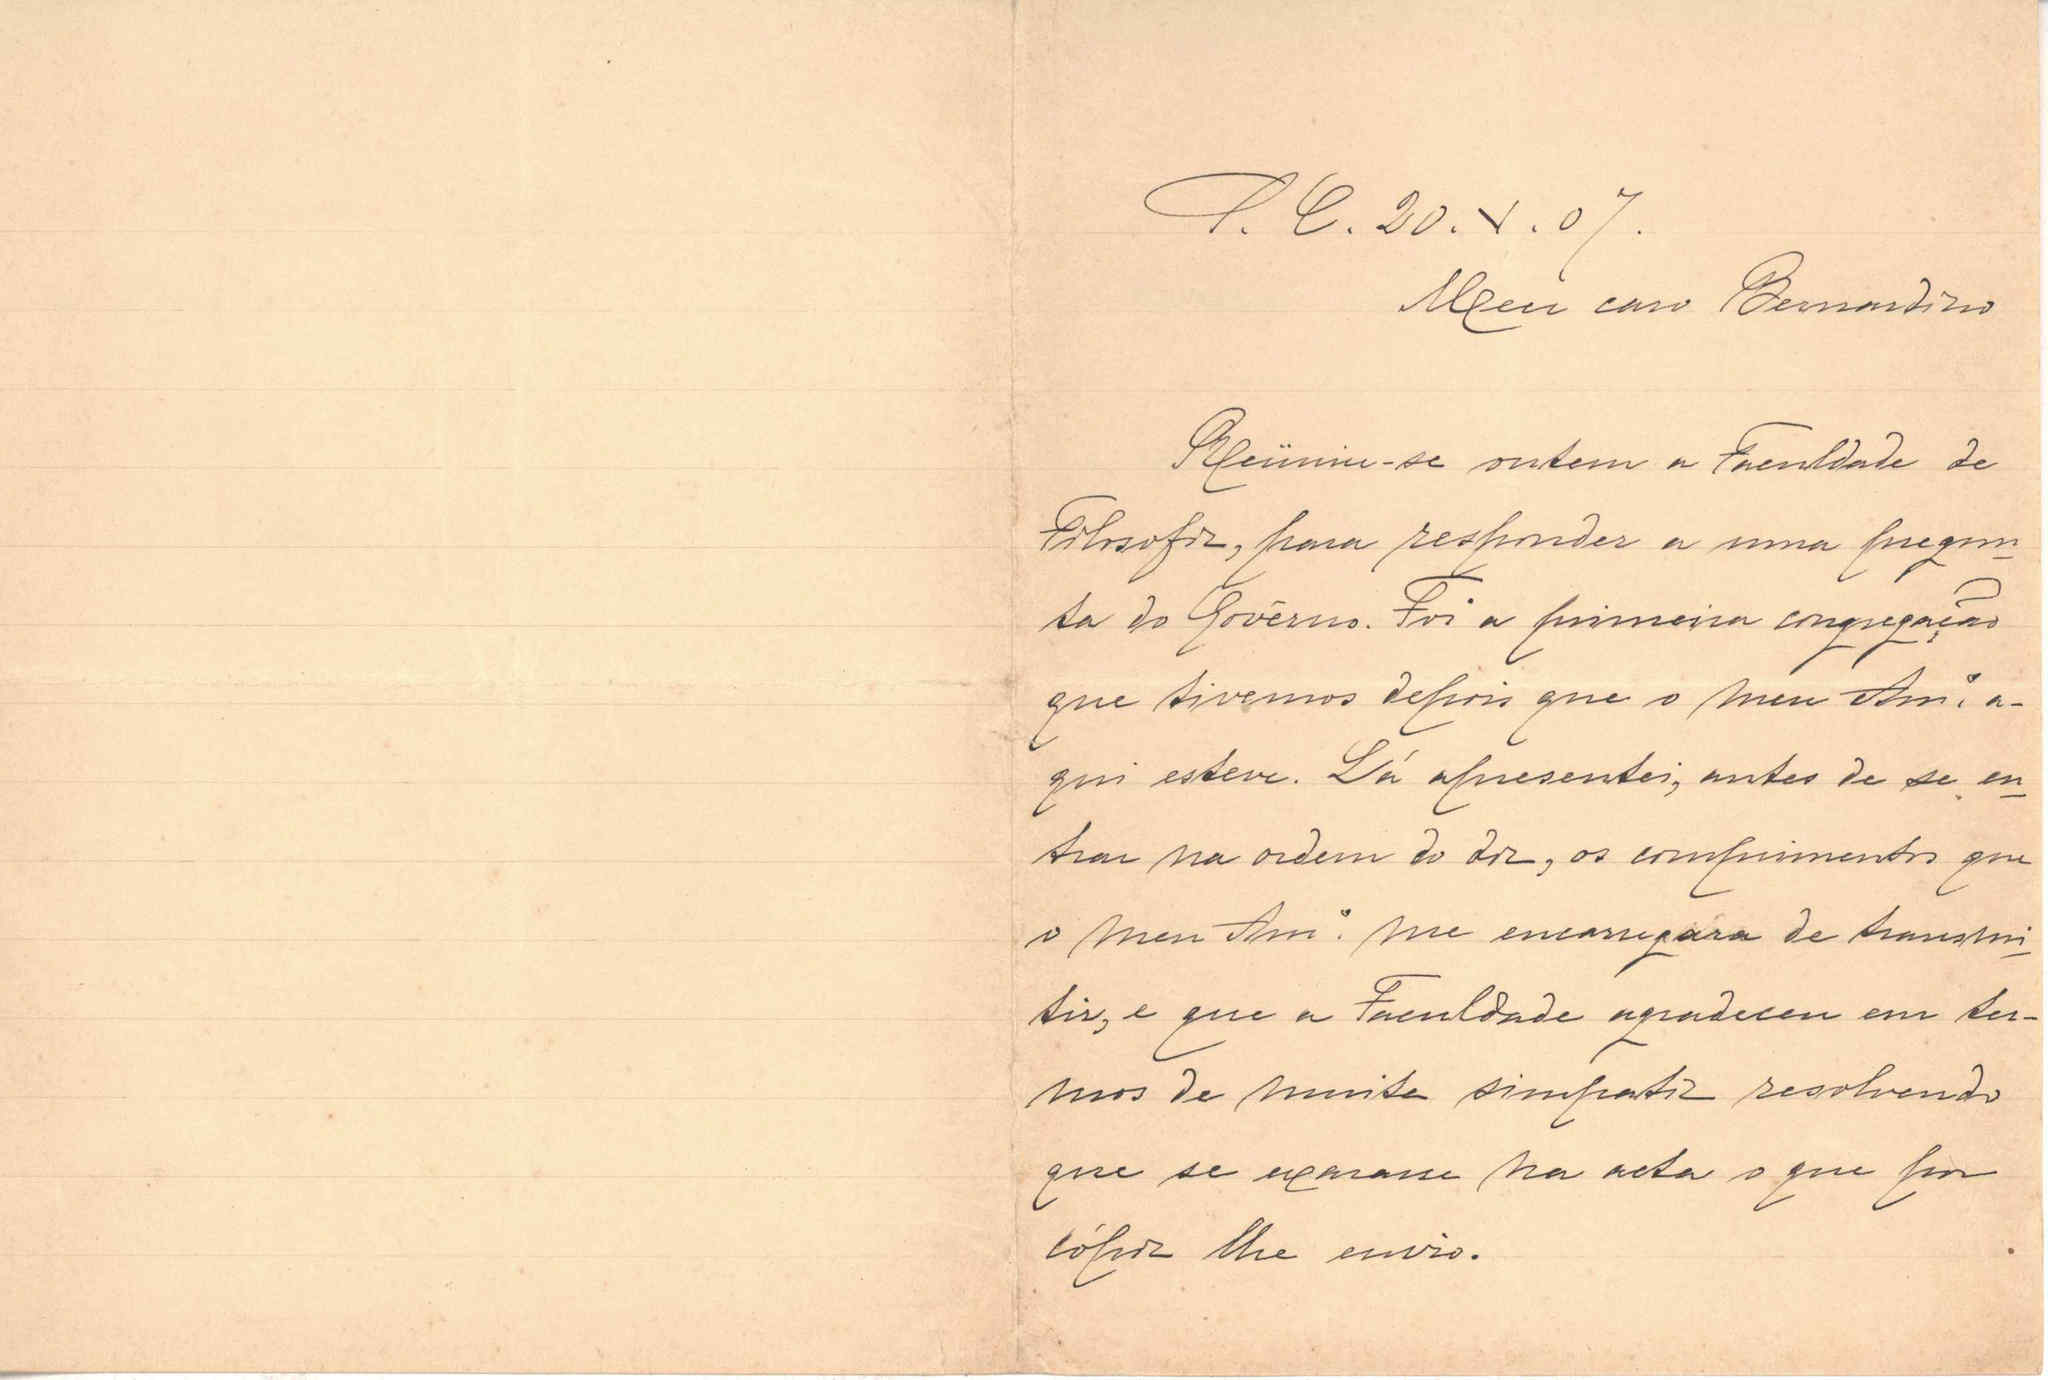 S. C. 20. X. 07.
Meu caro Bernardino
Reüniu-se ontem a Faculdade de
Filosofia, para responder a uma pregun-
ta do Govêrno. Foi a primeira congregação
que tivemos depois que o meu Am.º a-
qui esteve. Lá apresentei, antes de se en-
trar na ordem do dia, os comprimentos que
o meu Am.º me encarregára de transmi-
tir, e que a Faculdade agradeceu em ter-
mos de muita simpatia resolvendo
que se exarasse na acta o que por
cópia lhe envio.